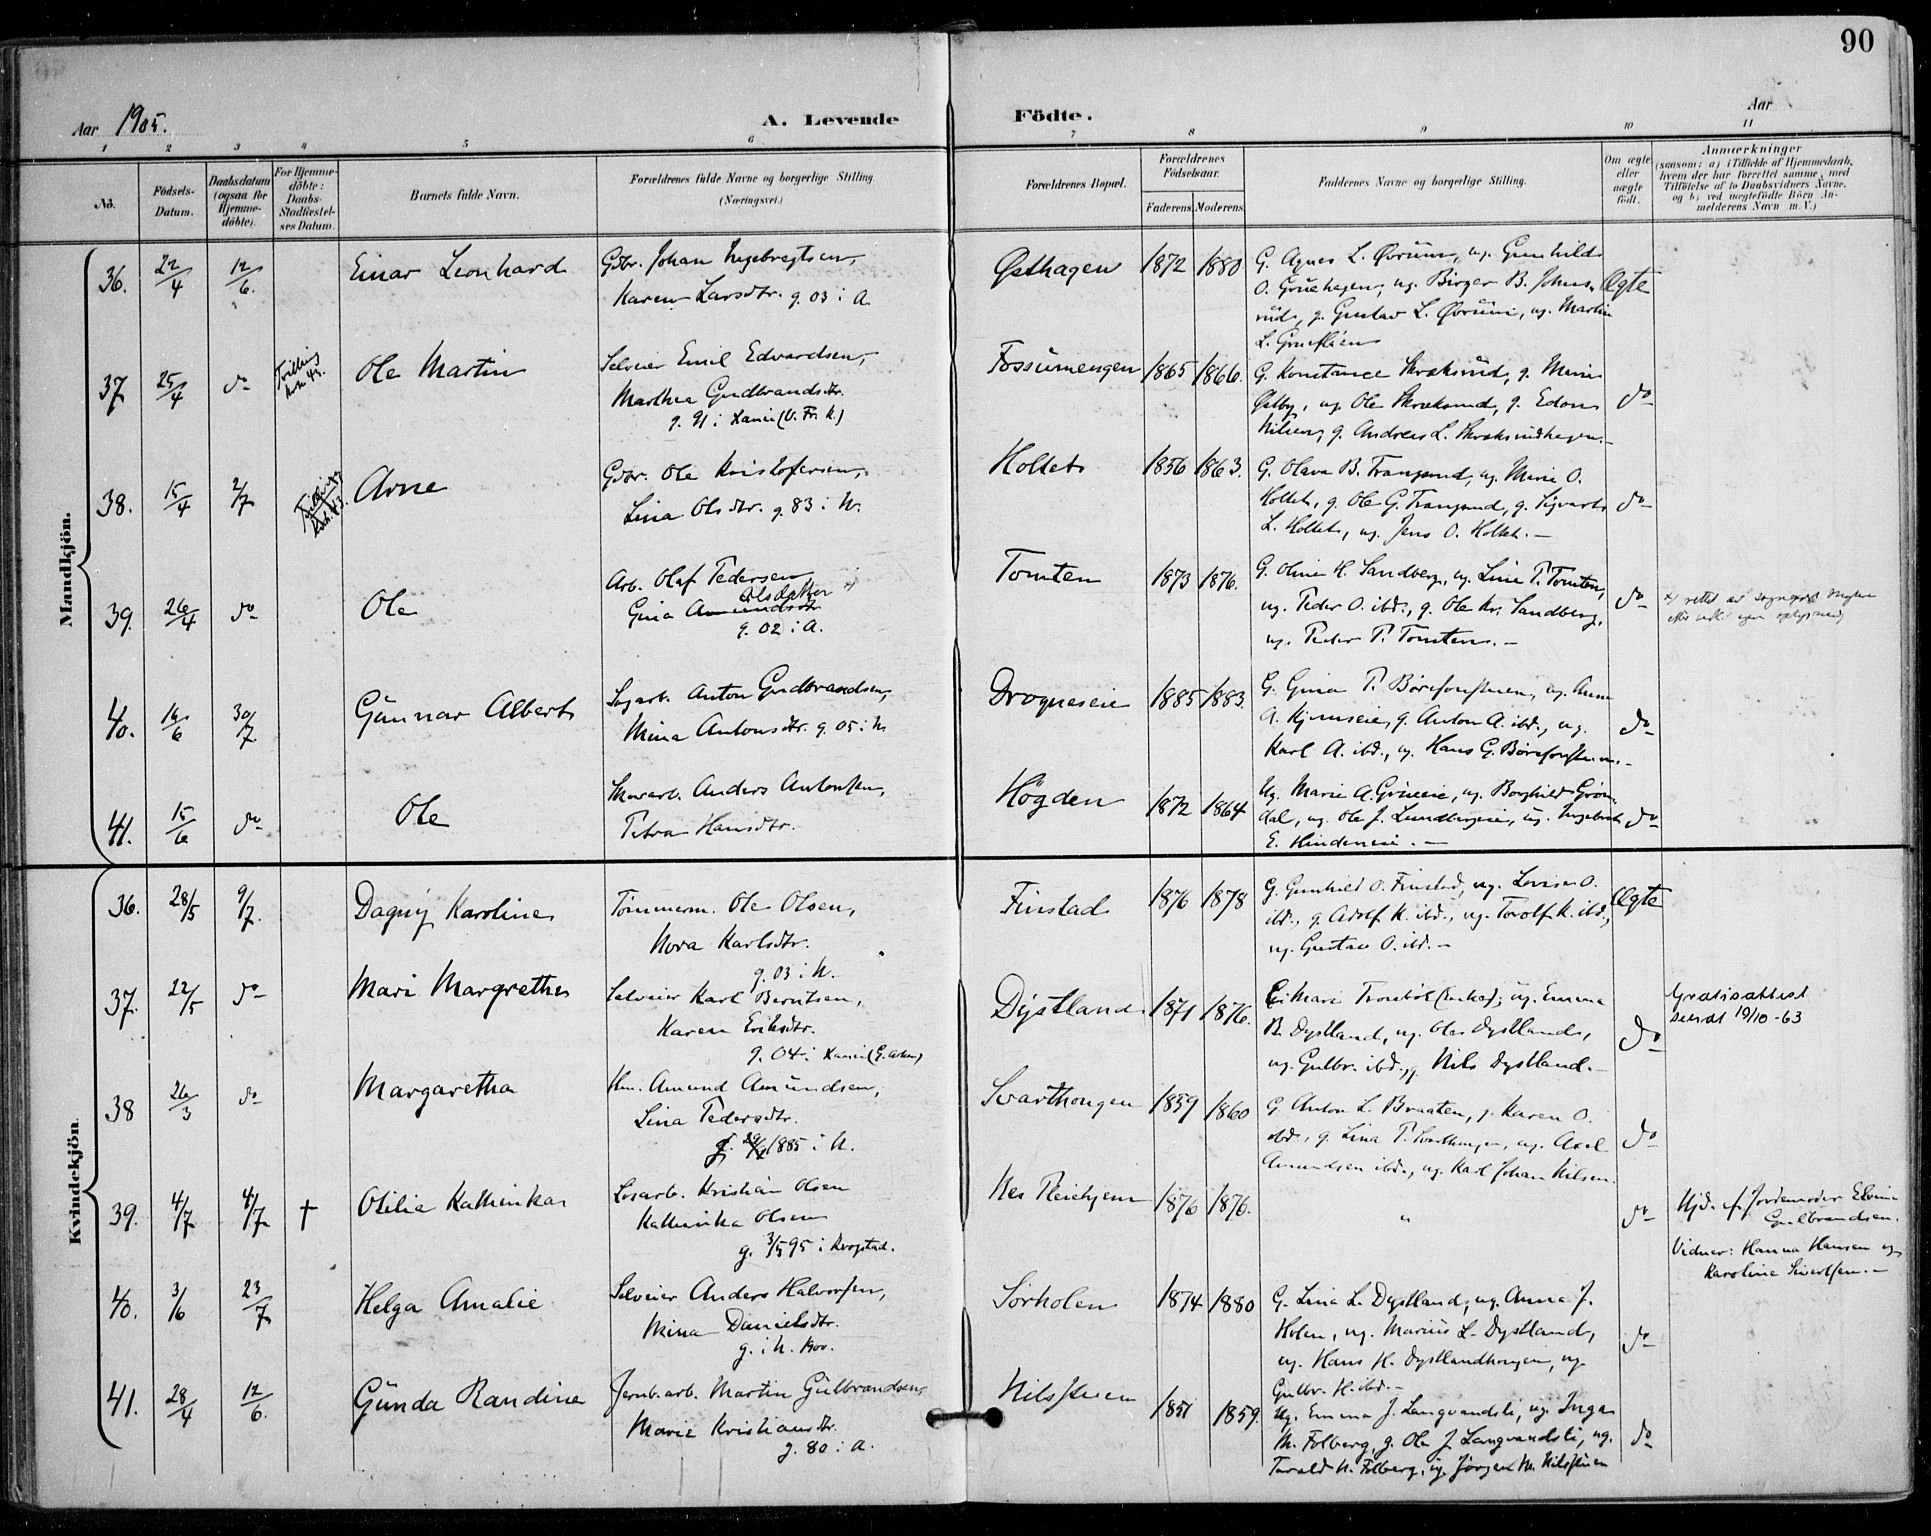 90
Aar 1905.
A. Levende
Födte.
Aar
1 2 3 4 5 6 7 8 9 10 11
No.
Födsels-Datum.
Daabsdatum (ogsaa for Hjemme-döbte).
For Hjemme-döbte: Daabs-Stadfæstel-ses Datum.
Barnets fulde Navn.
Forældrenes fulde Navne og borgerlige Stilling (Næringsvei.)
Forældrenes Bopæl.
Forældrenes Födselsaar.
Faderens. Moderens.
Faddernes Navne og borgerlige Stilling.
Om ægte eller uægte födt.
Anmærkninger
(saasom: a) i Tilfælde af Hjemmedaab, hvem der har forrettet samme, med Tilföielse af to Daabsvidners Navne, og b) ved uægtefödte Börn An-melderens Navn m. V.)
Mandkjön.
36. 22/4 12/6. Einar Leonhard Gbr. Johan Ingebregtsen, Østhagen 1872 1880 G. Agnes L. Øvrum, ug. Gunhild Ægte
Karen Larsdtr. g. 03 i A. O. Gruehagen, ug. Birger B. Johns-
rud, g. Gustav L. Øvrum, ug. Martin
37. 25/4 do Tvilling Ole Martin Selveier Emil Edvardsen, Fossumengen 1865 1866. G. Konstance Skraksrud, g. do
Marthea Gudbrandsdtr. Østby, ug. Ole Skraksrud, g.
g. 91 i (V. Fr. k.) Nilsen, g. Andreas L.
38. 15/4 2/7 Arne Gbr. Ole Kristofersen, Holtet 1856 1863. G. Olava B. Trangsrud, ug. Marie O. do
Lina Olsdtr. g. 83 i N. Holtet, g. Ole G. Trangsrud, g. Sigvart
L. Holtet, ug. Jens O. Holtet. —
39. 26/4 do Ole Arb. Olaf Pedersen Tomten 1873 1876. G. Oline H. Sandberg, ug. Line P. Tomten, do
Gina Amundsdtr Olsdatter x) ug. Peder O. ibd., g. Ole Kr. Sandberg,
g. 02 i A. ug. Peder P. Tomten. —
x) rettet av
40. 16/6 30/7 Gunnar Albert Sagarb. Anton Gudbrandsen, Drogneseie 1885 1883. G. Gina P. ug. do
Mina Antonsdtr. g. 05 i N. A. g. Anton A. ibd., ug.
Karl A. ibd., g. Hans G.
41. 15/6 do Ole Anders Antonsen, Högden 1872 1864 Ug. Marie A. Grueeie, ug. Borghild Grön- do
Petra Hansdtr. dal, ug. Ole J. ug.
E. —
Kvindekjön.
36. 28/5 9/7. Dagny Karoline Tömmerm. Ole Olsen, Finstad 1876 1878 G. Gunhild O. Finstad, ug. Lovise O. Ægte
Nora Karlsdtr. ibd., g. Adolf K. ibd., ug. Torolf K. ibd.,
g. 03 i N. ug. Gustav O. ibd. —
37. 22/5 do Mari Margrethe Selveier Karl Berntsen, Dystland 1871 1876. Mari ug. Emma do
Karen Eriksdtr. B. Dystland, ug. Ole Dystland,
g. 04 i ug. Gulbr. ibd., g. Nils Dystland. —
Gratisattest
sendt 19/10-63
38 26/3 do Margaretha Amund Amundsen, Svarthougen 1859 1860 G. Anton L. Braaten, g. Karen O. do
Lina Pedersdtr. ibd., g. Lina P. Svarthougen, ug. Axel
1885 i N. Amundsen ibd., ug. Karl Johan Nilsen.
39. 4/7 4/7 † Otilie Kathinka Kristian Olsen 1876 1876. " do
Kathinka Olsen
g. 3/5 95 i Krogstad.
Hjd. af Jordemoder
Gulbrandsen.
Vidner: Hanna Hansen og
Karoline Sivertsen. —
40. 3/6 23/7 Helga Amalie Selveier Anders Halvorsen, Sörholen 1874 1880 G. Lina L. Dystland, ug. Anna J. do
Mina Danielsdtr. Holen, ug. Marius L. Dystland,
g. i N. ug. Hans H. Dystlandhougen, ug.
Gulbr. H. ibd. —
41. 28/4 12/6. Gunda Randine Jernb.arb. Martin Gulbrandsen, Nilsstuen 1851 1859. Ug. Emma J. Langvandsli, ug. Inga do
Marie Kristiansdtr. M. Folberg, g. Ole J. Langvandsli, ug.
g. 80 i A. Torald N. Folberg, ug. Jörgen M. Nilsstuen